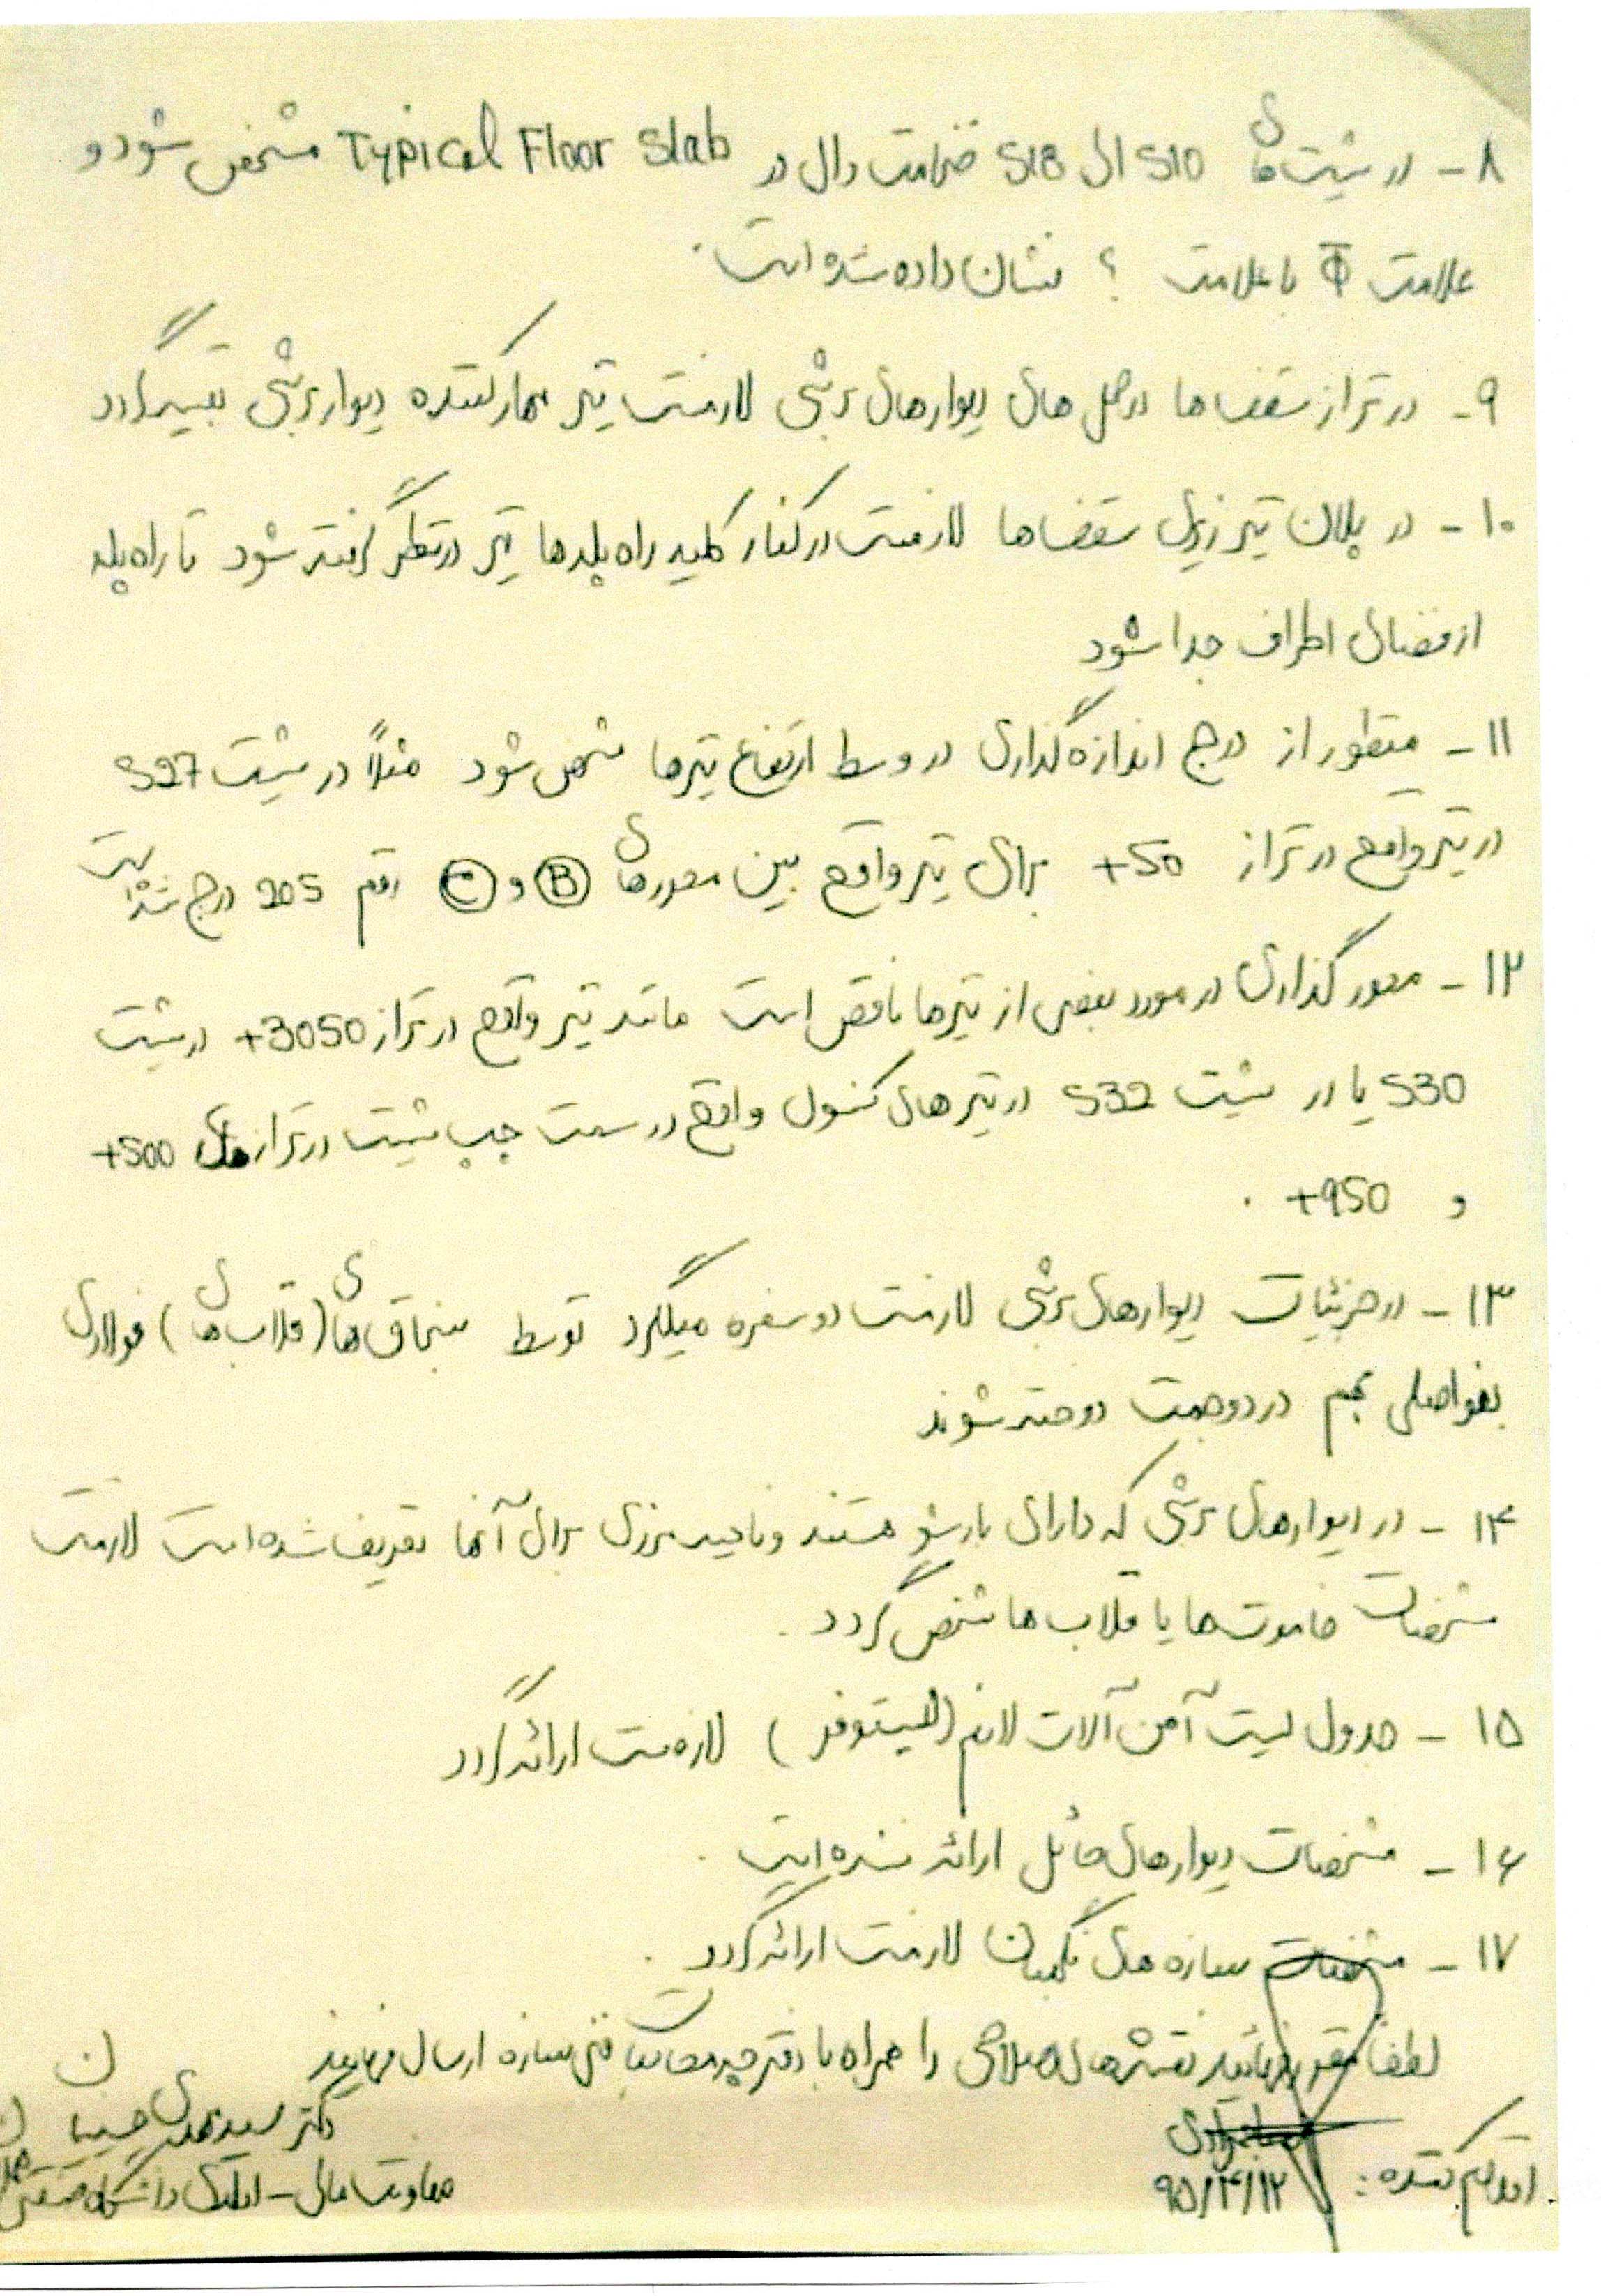 ۸ - در شیت های S10 الی S18 ضخامت دال در Typical Floor Slab مشخص شود و
علامت Φ با علامت ؟ نشان داده شده است.
۹ - در تراز سقف ها در محل های دیوارهای برشی لازمست تیر مهار کننده دیوار برشی تعبیه گردد
۱۰ - در پلان تیرریزی سقف ها لازمست در کنار کلیه راه پله ها تیر در نظر گرفته شود تا راه پله
از فضای اطراف جدا شود
۱۱ - منظور از درج اندازه گذاری در وسط ارتفاع تیرها مشخص شود مثلاً در شیت S27
در تیر واقع در تراز +50 برای تیر واقع بین محورهای B و C رقم 205 درج شده است
۱۲ - محور گذاری در مورد بعضی از تیرها ناقص است مانند تیر واقع در تراز +3050 در شیت
S30 یا در شیت S32 در تیرهای کنسول واقع در سمت چپ شیت در ترازهای +500
و +950 .
۱۳ - در جزئیات دیوارهای برشی لازمست دو سفره میلگرد توسط سنجاق های (قلاب های) فولادی
بفواصلی بهم در دو جهت دوخته شوند
۱۴ - در دیوارهای برشی که دارای بازشو هستند و ناحیه مرزی برای آنها تعریف شده است لازمست
مشخصات خاموت ها یا قلاب ها مشخص گردد .
۱۵ - جدول لیست آهن آلات لازم (لیستوفر) لازمست ارائه گردد
۱۶ - مشخصات دیوارهای حائل ارائه نشده است .
۱۷ - مشخصات سازه های نگهبان لازمست ارائه گردد .
لطفاً مقرر فرمائید نقشه های اصلاحی را همراه با دفترچه محاسبات فنی سازه ارسال فرمایند
دکتر سید مهدی حسینیان
اقدام کننده :
۹۵/۴/۱۲
معاونت مالی - اداری دانشگاه صنعتی